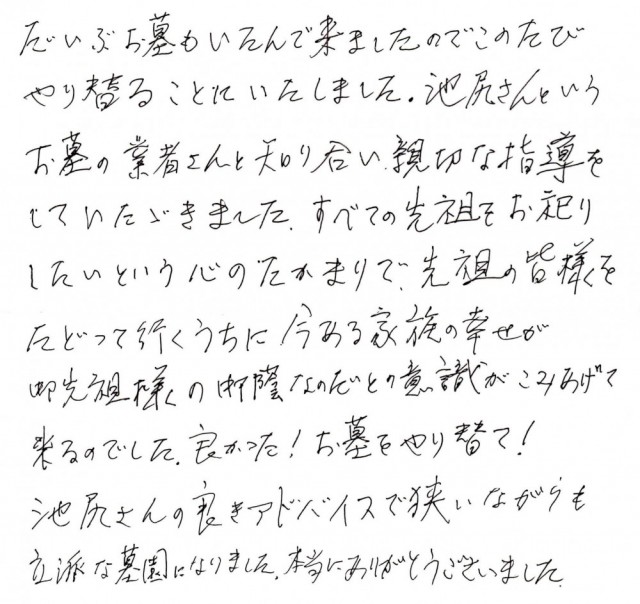 だいぶお墓もいたんで来ましたのでこのたび
やり替ることにいたしました。池尻さんという
お墓の業者さんと知り合い、親切な指導を
していたゞきました。すべての先祖をお祀り
したいという心のたかまりで、先祖の皆様を
たどって行くうちに今ある家族の幸せが
御先祖様の御蔭なのだとの意識がこみあげて
来るのでした。良かった！お墓をやり替て！
池尻さんの良きアドバイスで狭いながらも
立派な墓園になりました。本当にありがとうございました。